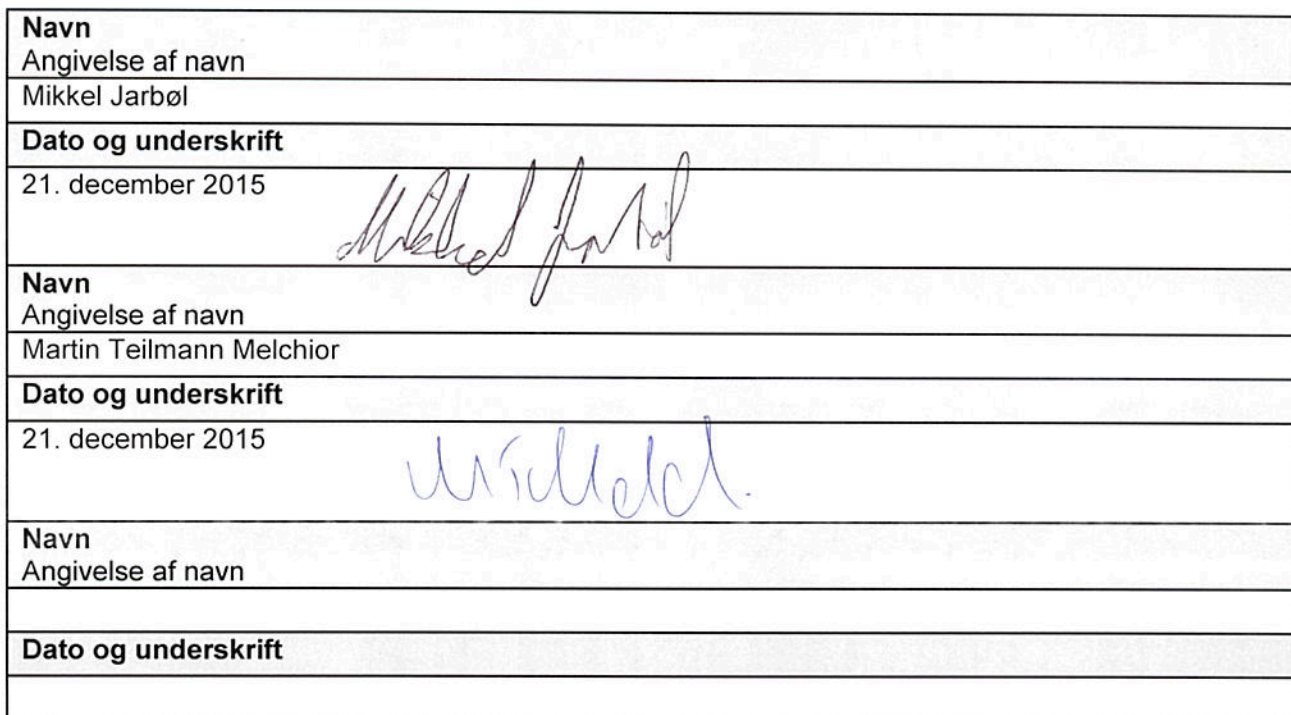 Navn
Angivelse af navn
Mikkel Jarbøl
Dato og underskrift
21. december 2015
Mikkel Jarbøl
Navn
Angivelse af navn
Martin Teilmann Melchior
Dato og underskrift
21. december 2015
Navn
Angivelse af navn
Dato og underskrift